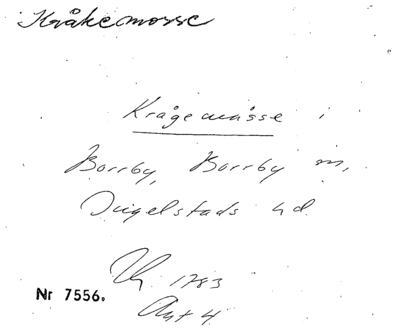 Kråkemosse
Krågemåsse i
Borrby, Borrby sn,
Ingelstads hd
1783
Nr 7556.
Akt 4